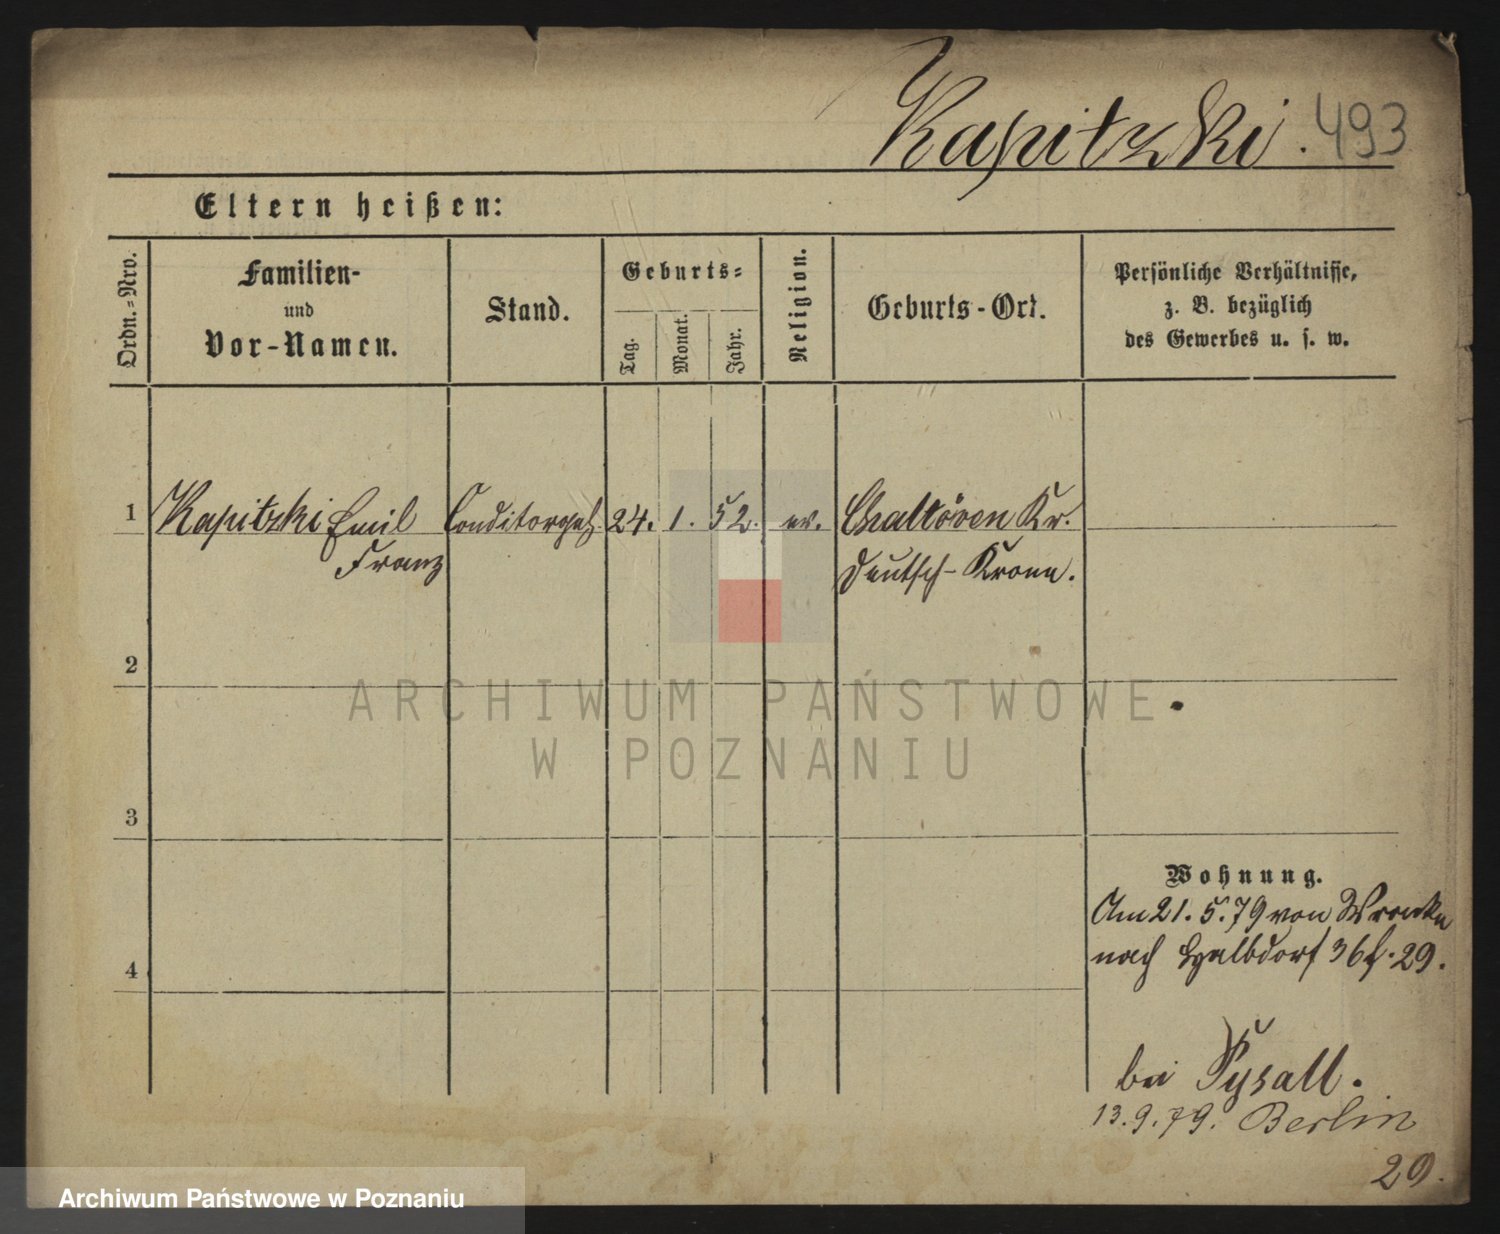 Kapitzki. 493
Eltern heißen:
Ordn.-Nro.
Familien-
und
Vor-Namen.
Stand.
Geburts-
Tag.
Monat.
Jahr.
Religion.
Geburts-Ort.
Persönliche Verhältnisse,
z. B. bezüglich
des Gewerbes u. s. w.
1 Kapitzki Emil Conditorgeh. 24. 1. 52. ev. Kr.
Franz Deutsch-Krone.
2
ARCHIWUM PAŃSTWOWE
W POZNANIU
3
Wohnung.
Am 21. 5. 79 von Wronke
nach Halbdorf 36 f. 29.
4
bei
13. 9. 79. Berlin
29.
Archiwum Państwowe w Poznaniu